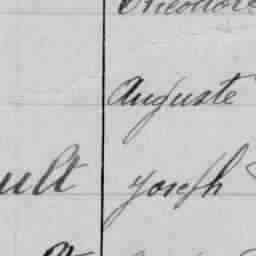 Theodore
Auguste
ult Joseph